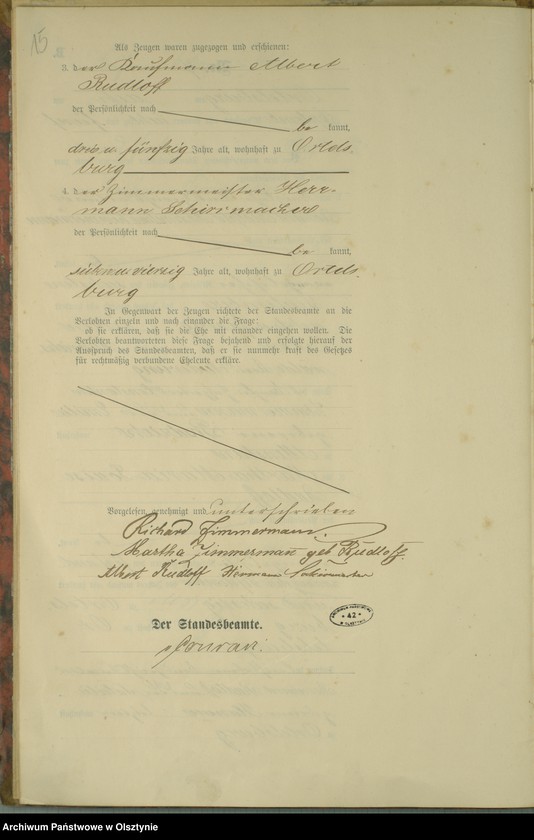 15
Als Zeugen waren zugezogen und erschienen:
3. der Kaufmann Albert
Rudloff
der Persönlichkeit nach
be kannt,
drei u. fünfzig Jahre alt, wohnhaft zu Ortels
burg
4. der Zimmermeister Herr-
mann Schirrmacher
der Persönlichkeit nach
be kannt,
sieben u. vierzig Jahre alt, wohnhaft zu Ortels
burg
In Gegenwart der Zeugen richtete der Standesbeamte an die
Verlobten einzeln und nach einander die Frage:
ob sie erklären, daß sie die Ehe mit einander eingehen wollen. Die
Verlobten beantworteten diese Frage bejahend und erfolgte hierauf der
Ausspruch des Standesbeamten, daß er sie nunmehr kraft des Gesetzes
für rechtmäßig verbundene Eheleute erkläre.
Vorgelesen, genehmigt und unterschrieben
Richard Zimmermann.
Martha Zimmermann geb Rudloff.
Albert Rudloff Hermann Schirrmacher
Der Standesbeamte.
ARCHIWUM PAŃSTWOWE
* 42 *
W OLSZTYNIE
Archiwum Państwowe w Olsztynie